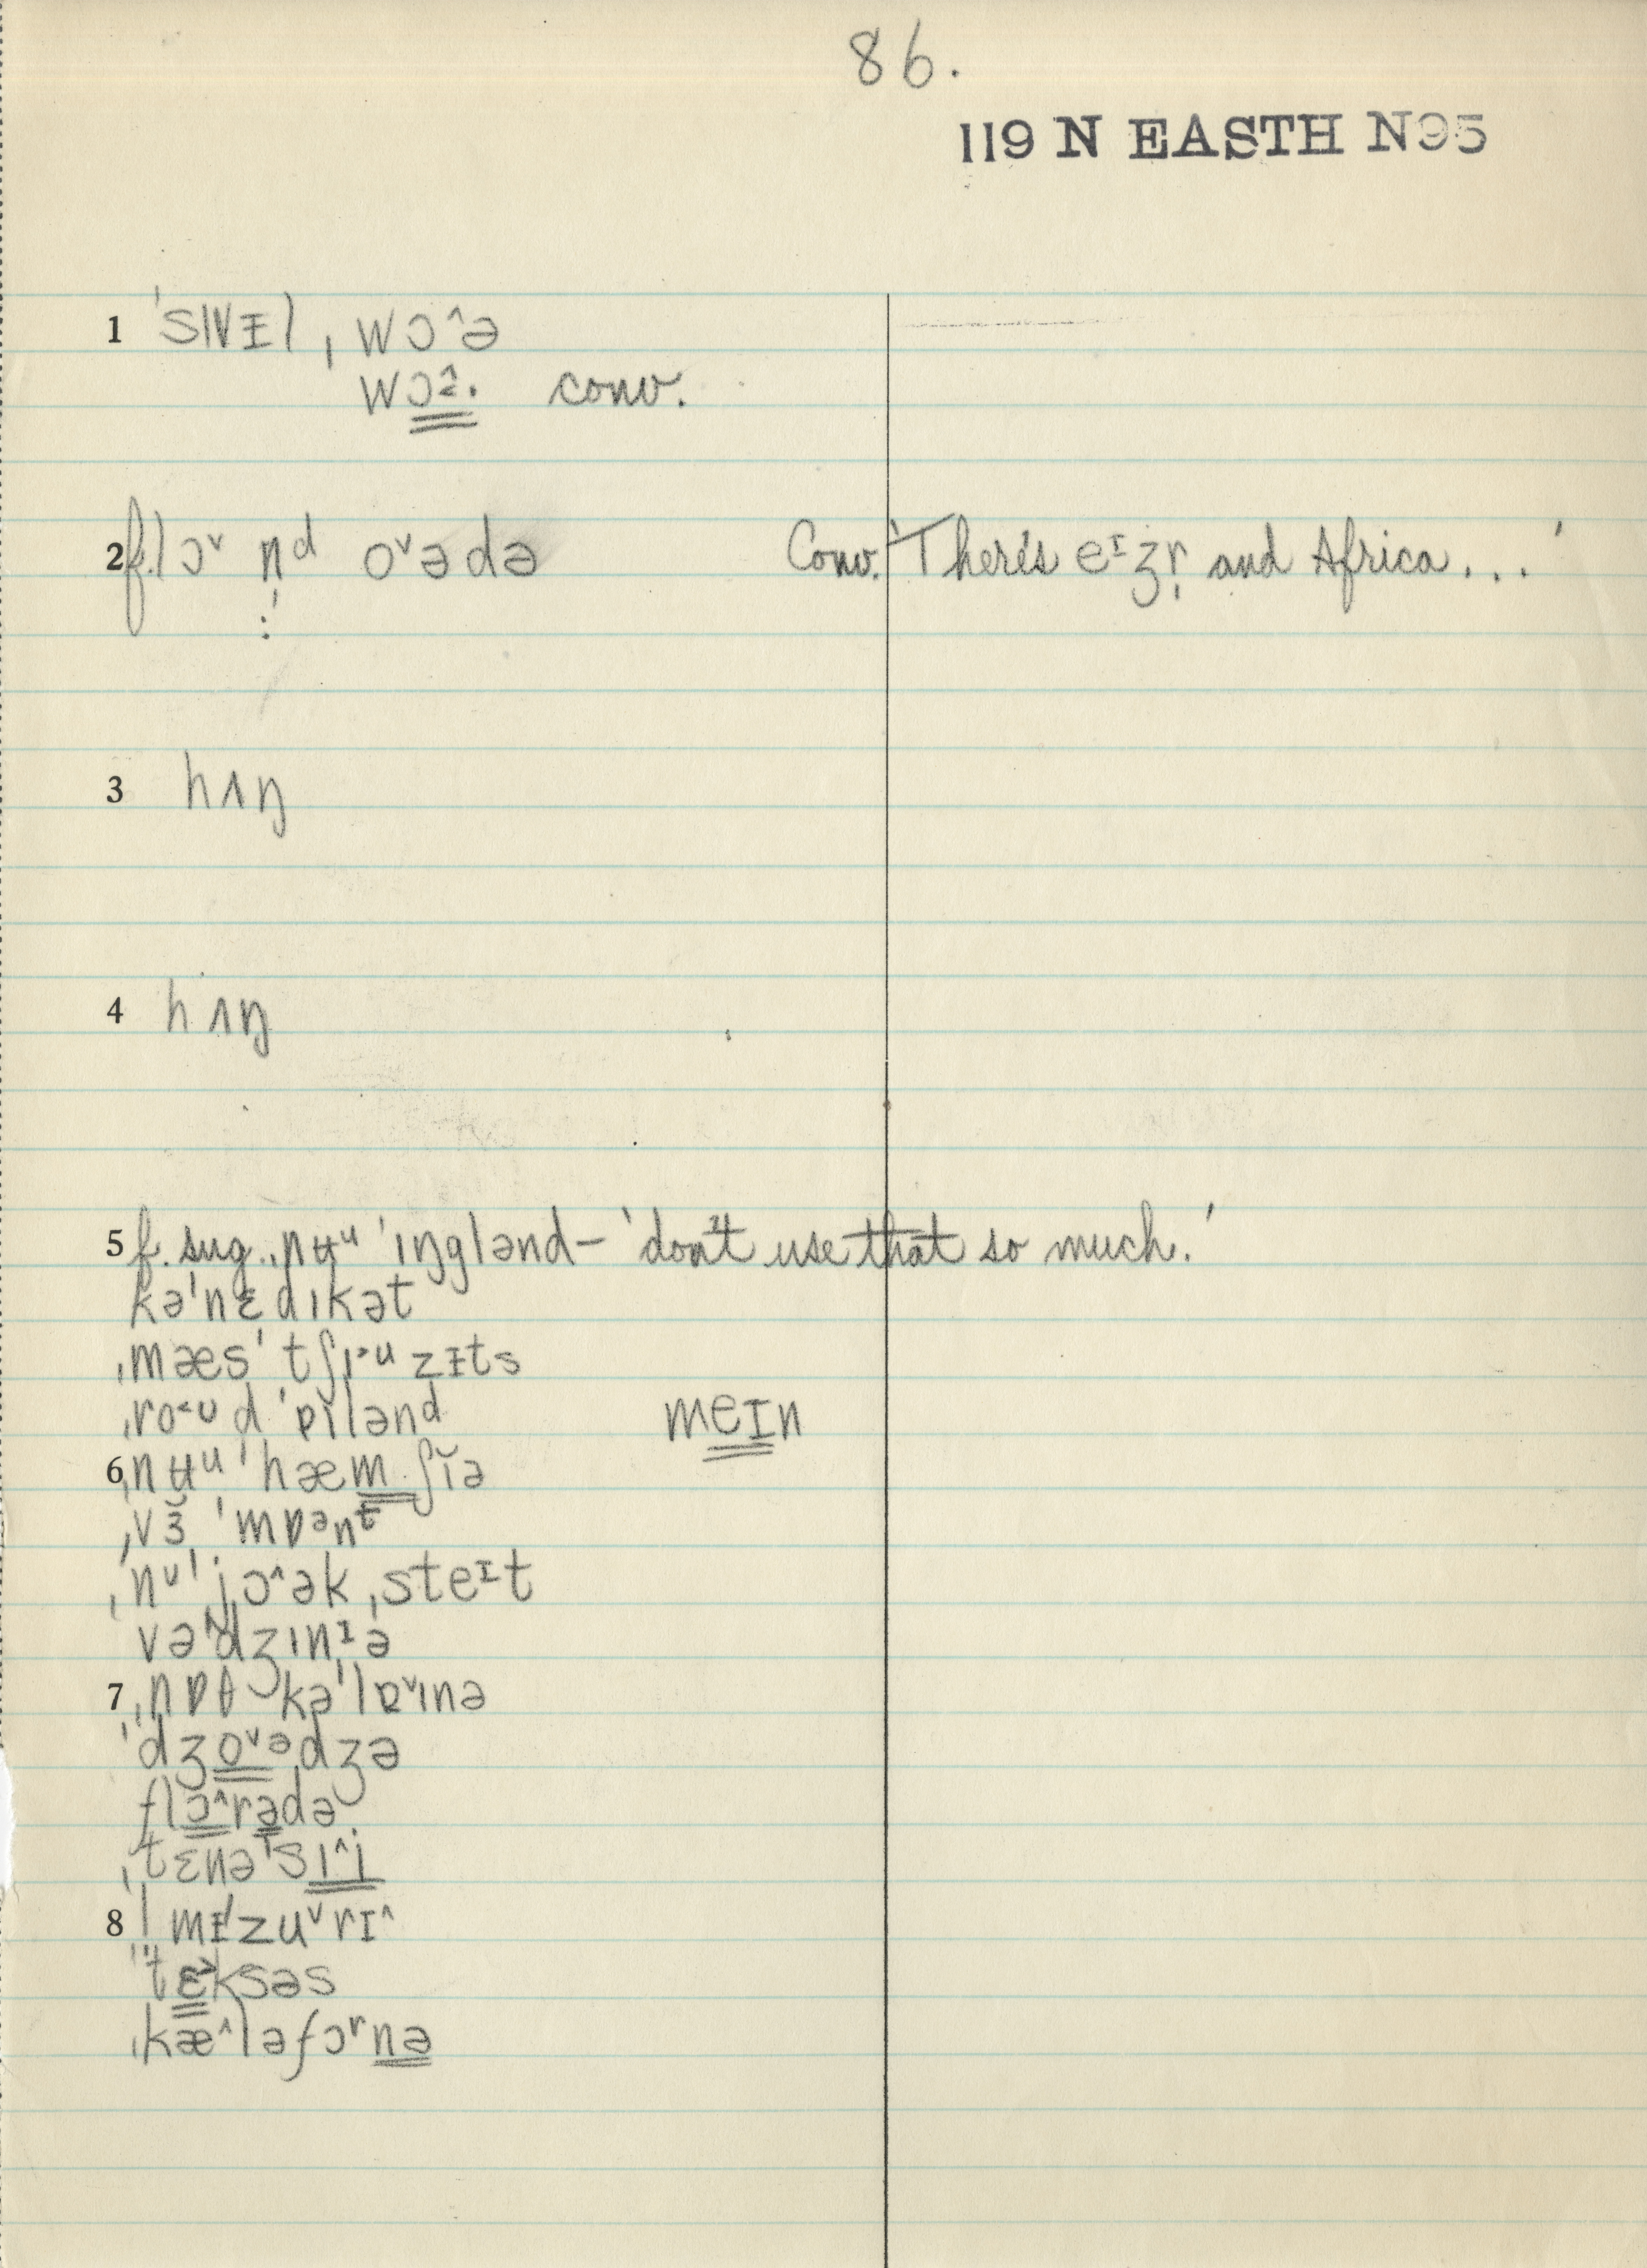 86.
119 N EASTH N95
1 ˈsɪvᵻl ˌwɔ^ə
wɔ^ə. conv.
2 f. lɔˇ n̩ᵈ oˇədə Conv. 'There's eᶦʒn̩ and Africa...'
3 hʌŋ
4 hʌŋ
5 f. sug. ˌnʉᵘ ˈɪŋglənd – 'don't use that so much.'
kəˈnɛdɪkət
ˌmæsˈtʃɪuzᵻts
ˌroᵘd ˈɒɪlənᵈ meɪn
6 ˌnʉᵘ ˈhæmʃĭə
ˌvɜ̆ ˈmɒənᵗ
ˌnᵘˈjɔ^ək ˌsteᶦt
vəˈdʒɪnᶦə
7 ˌnɒθ kəˈlɒˇɪnə
ˈdʒoˇədʒə
flɔ^rədə
ˌtɛnəˈsɪ^j
8 mᵻˈzuˇrɪ^
ˈtɛksəs
ˌkæ^ləfɔʳnə